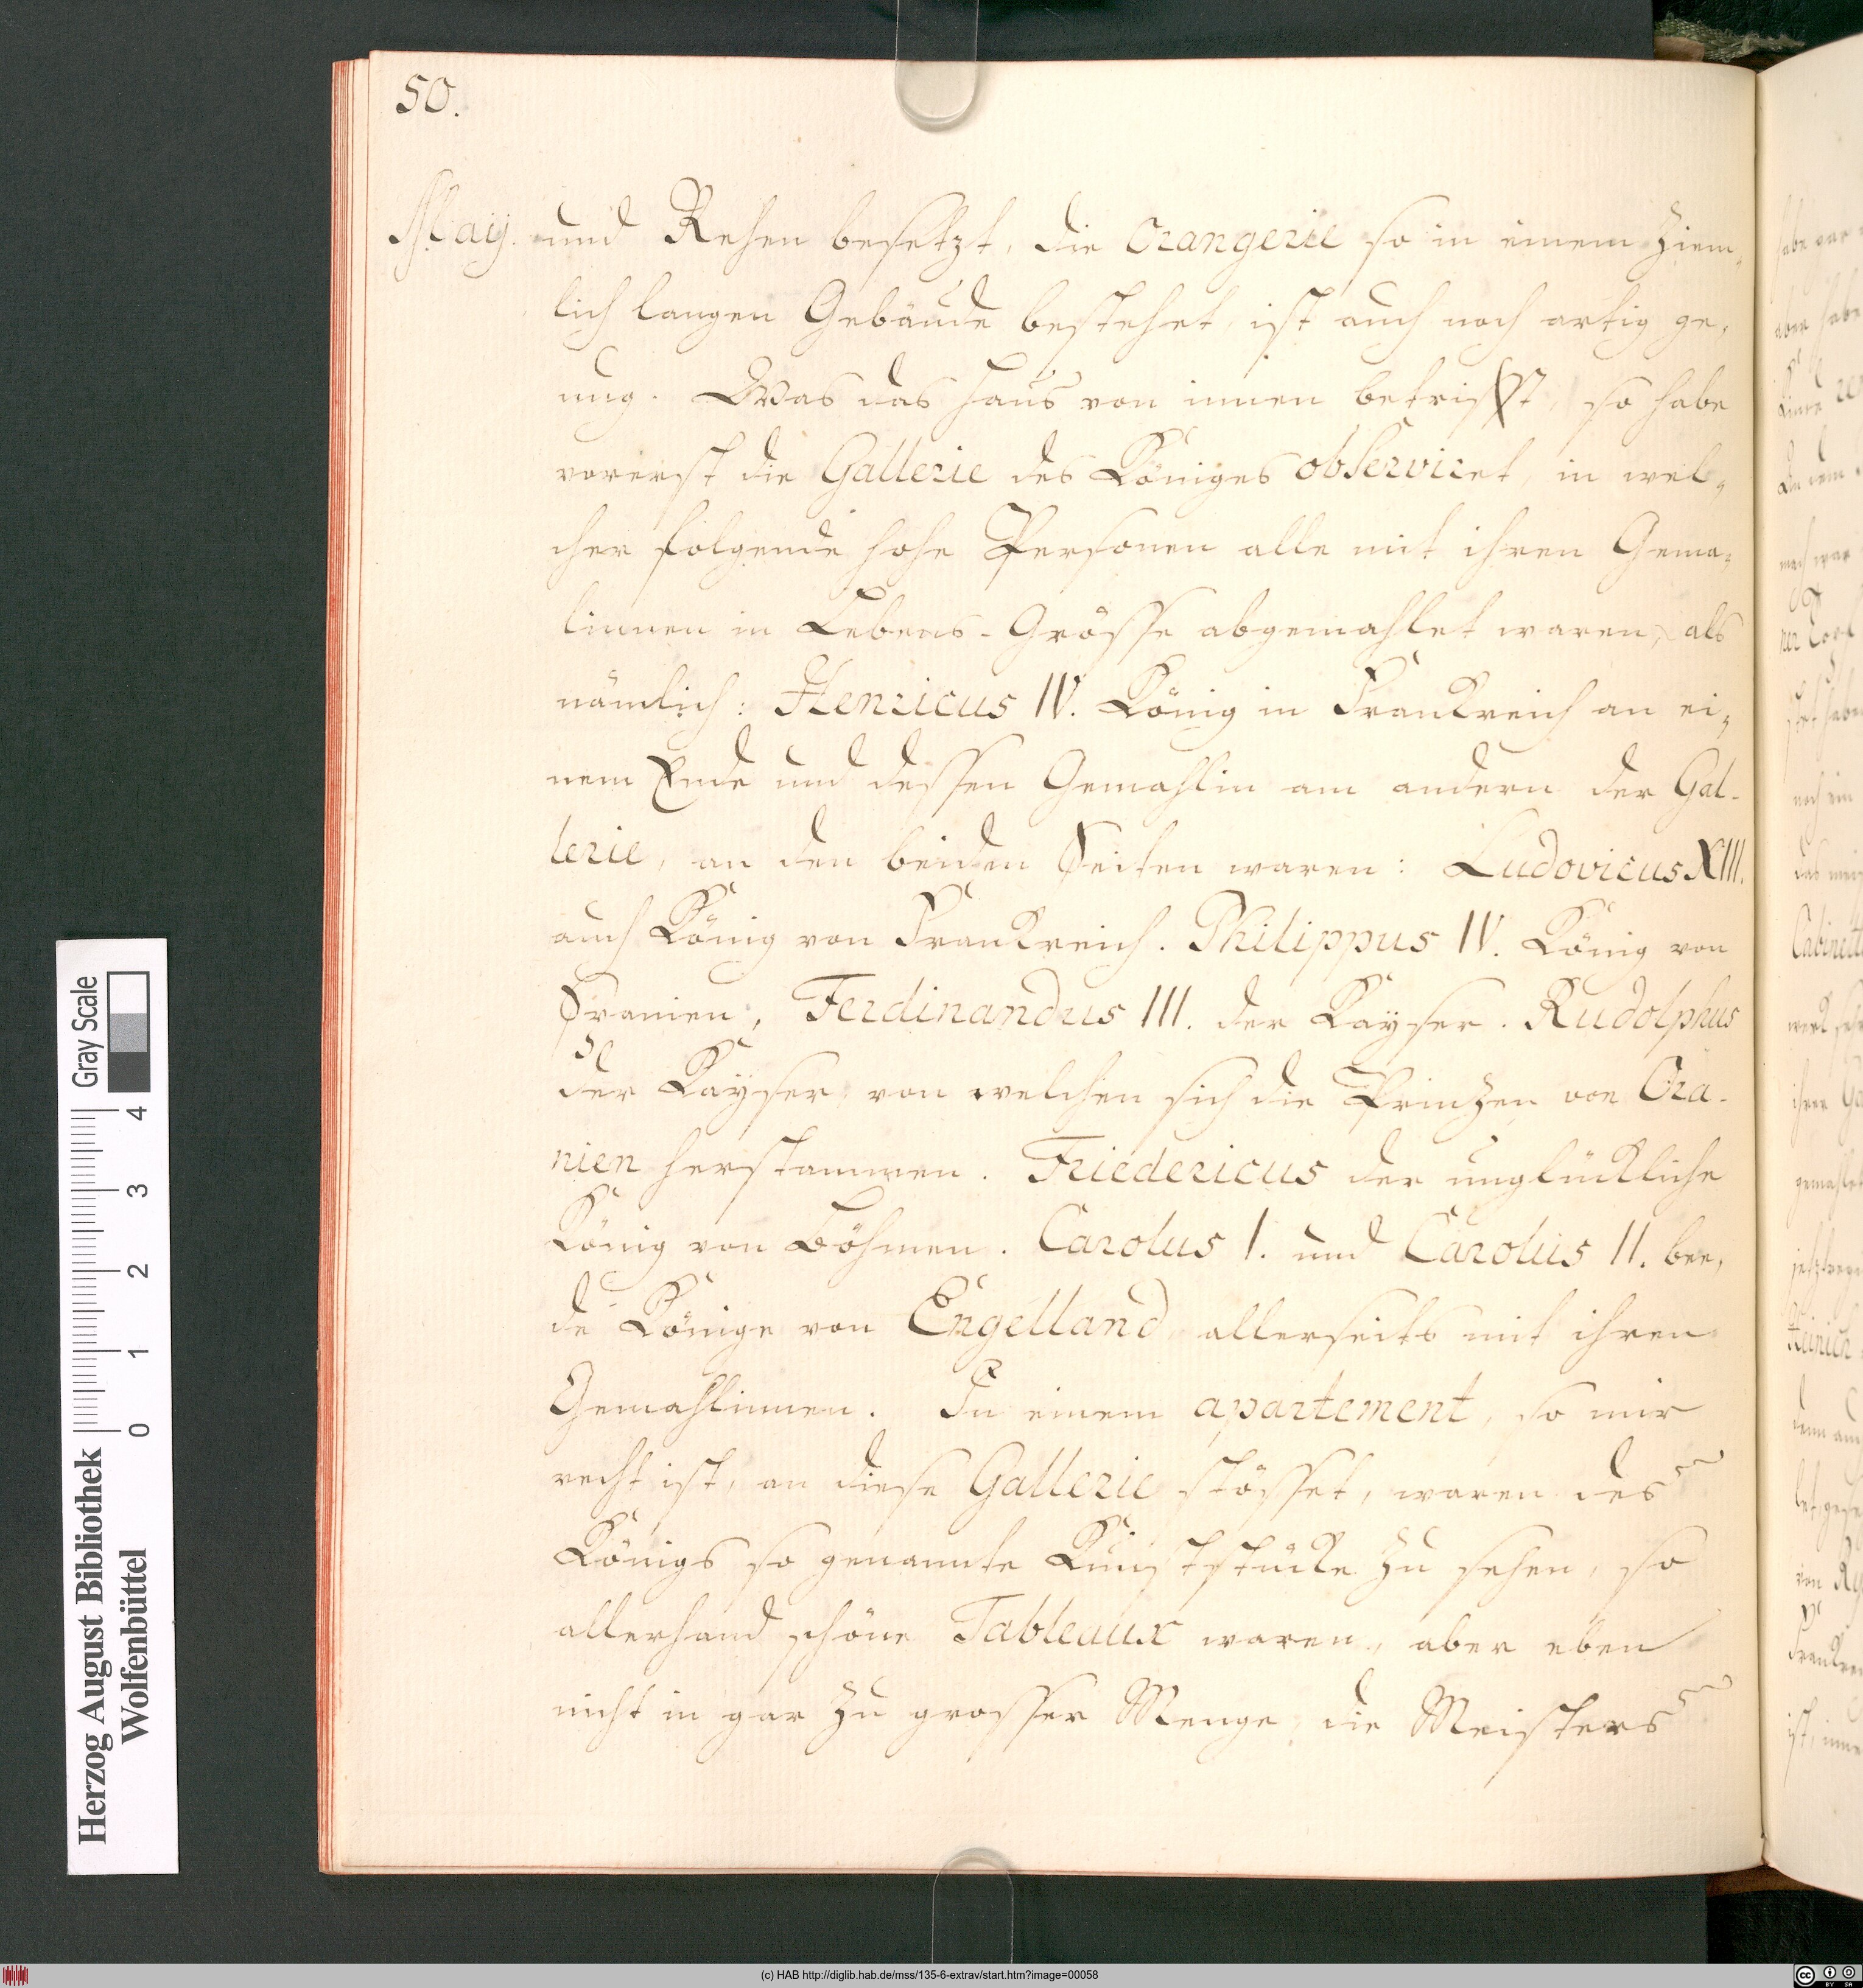 50.
May. und Rehen besetzt, die Orangerie so in einem ziem,
lich langen Gebäude bestehet, ist auch noch artig ge,
nug. Was das Haus von innen betrifft, so habe
vorerst die Gallerie des Königes observiret, in wel,
cher folgende hohe Personen alle mit ihren Gema,
linnen in Lebens-Grösse abgemahlet waren, als
nämlich: Henricus IV. König in Frankreich an ei,
nem Ende und dessen Gemahlin am andern der Gal-
lerie, an den beiden Seiten waren: Ludovicus XIII.
auch König von Frankreich. Philippus IV. König von
Spanien, Ferdinandus III. der Kayser. Rudolphus
der Kayser von welchen sich die Prinzen von Ora-
nien herstammen. Friedericus der unglückliche
König von Böhmen. Carolus I. und Carolus II. bee,
de Könige von Engelland allerseits mit ihren
Gemahlinnen. In einem apartement, so mir
recht ist, an diese Gallerie stösset, waren des
Königs so genannte Kunststücke zu sehen, so
allerhand schöne Tableaux waren, aber eben
nicht in gar zu grosser Menge, die Meisters
Herzog August Bibliothek
Wolfenbüttel
0 1 2 3 4
Gray Scale
(c) HAB http://diglib.hab.de/mss/135-6-extrav/start.htm?image=00058